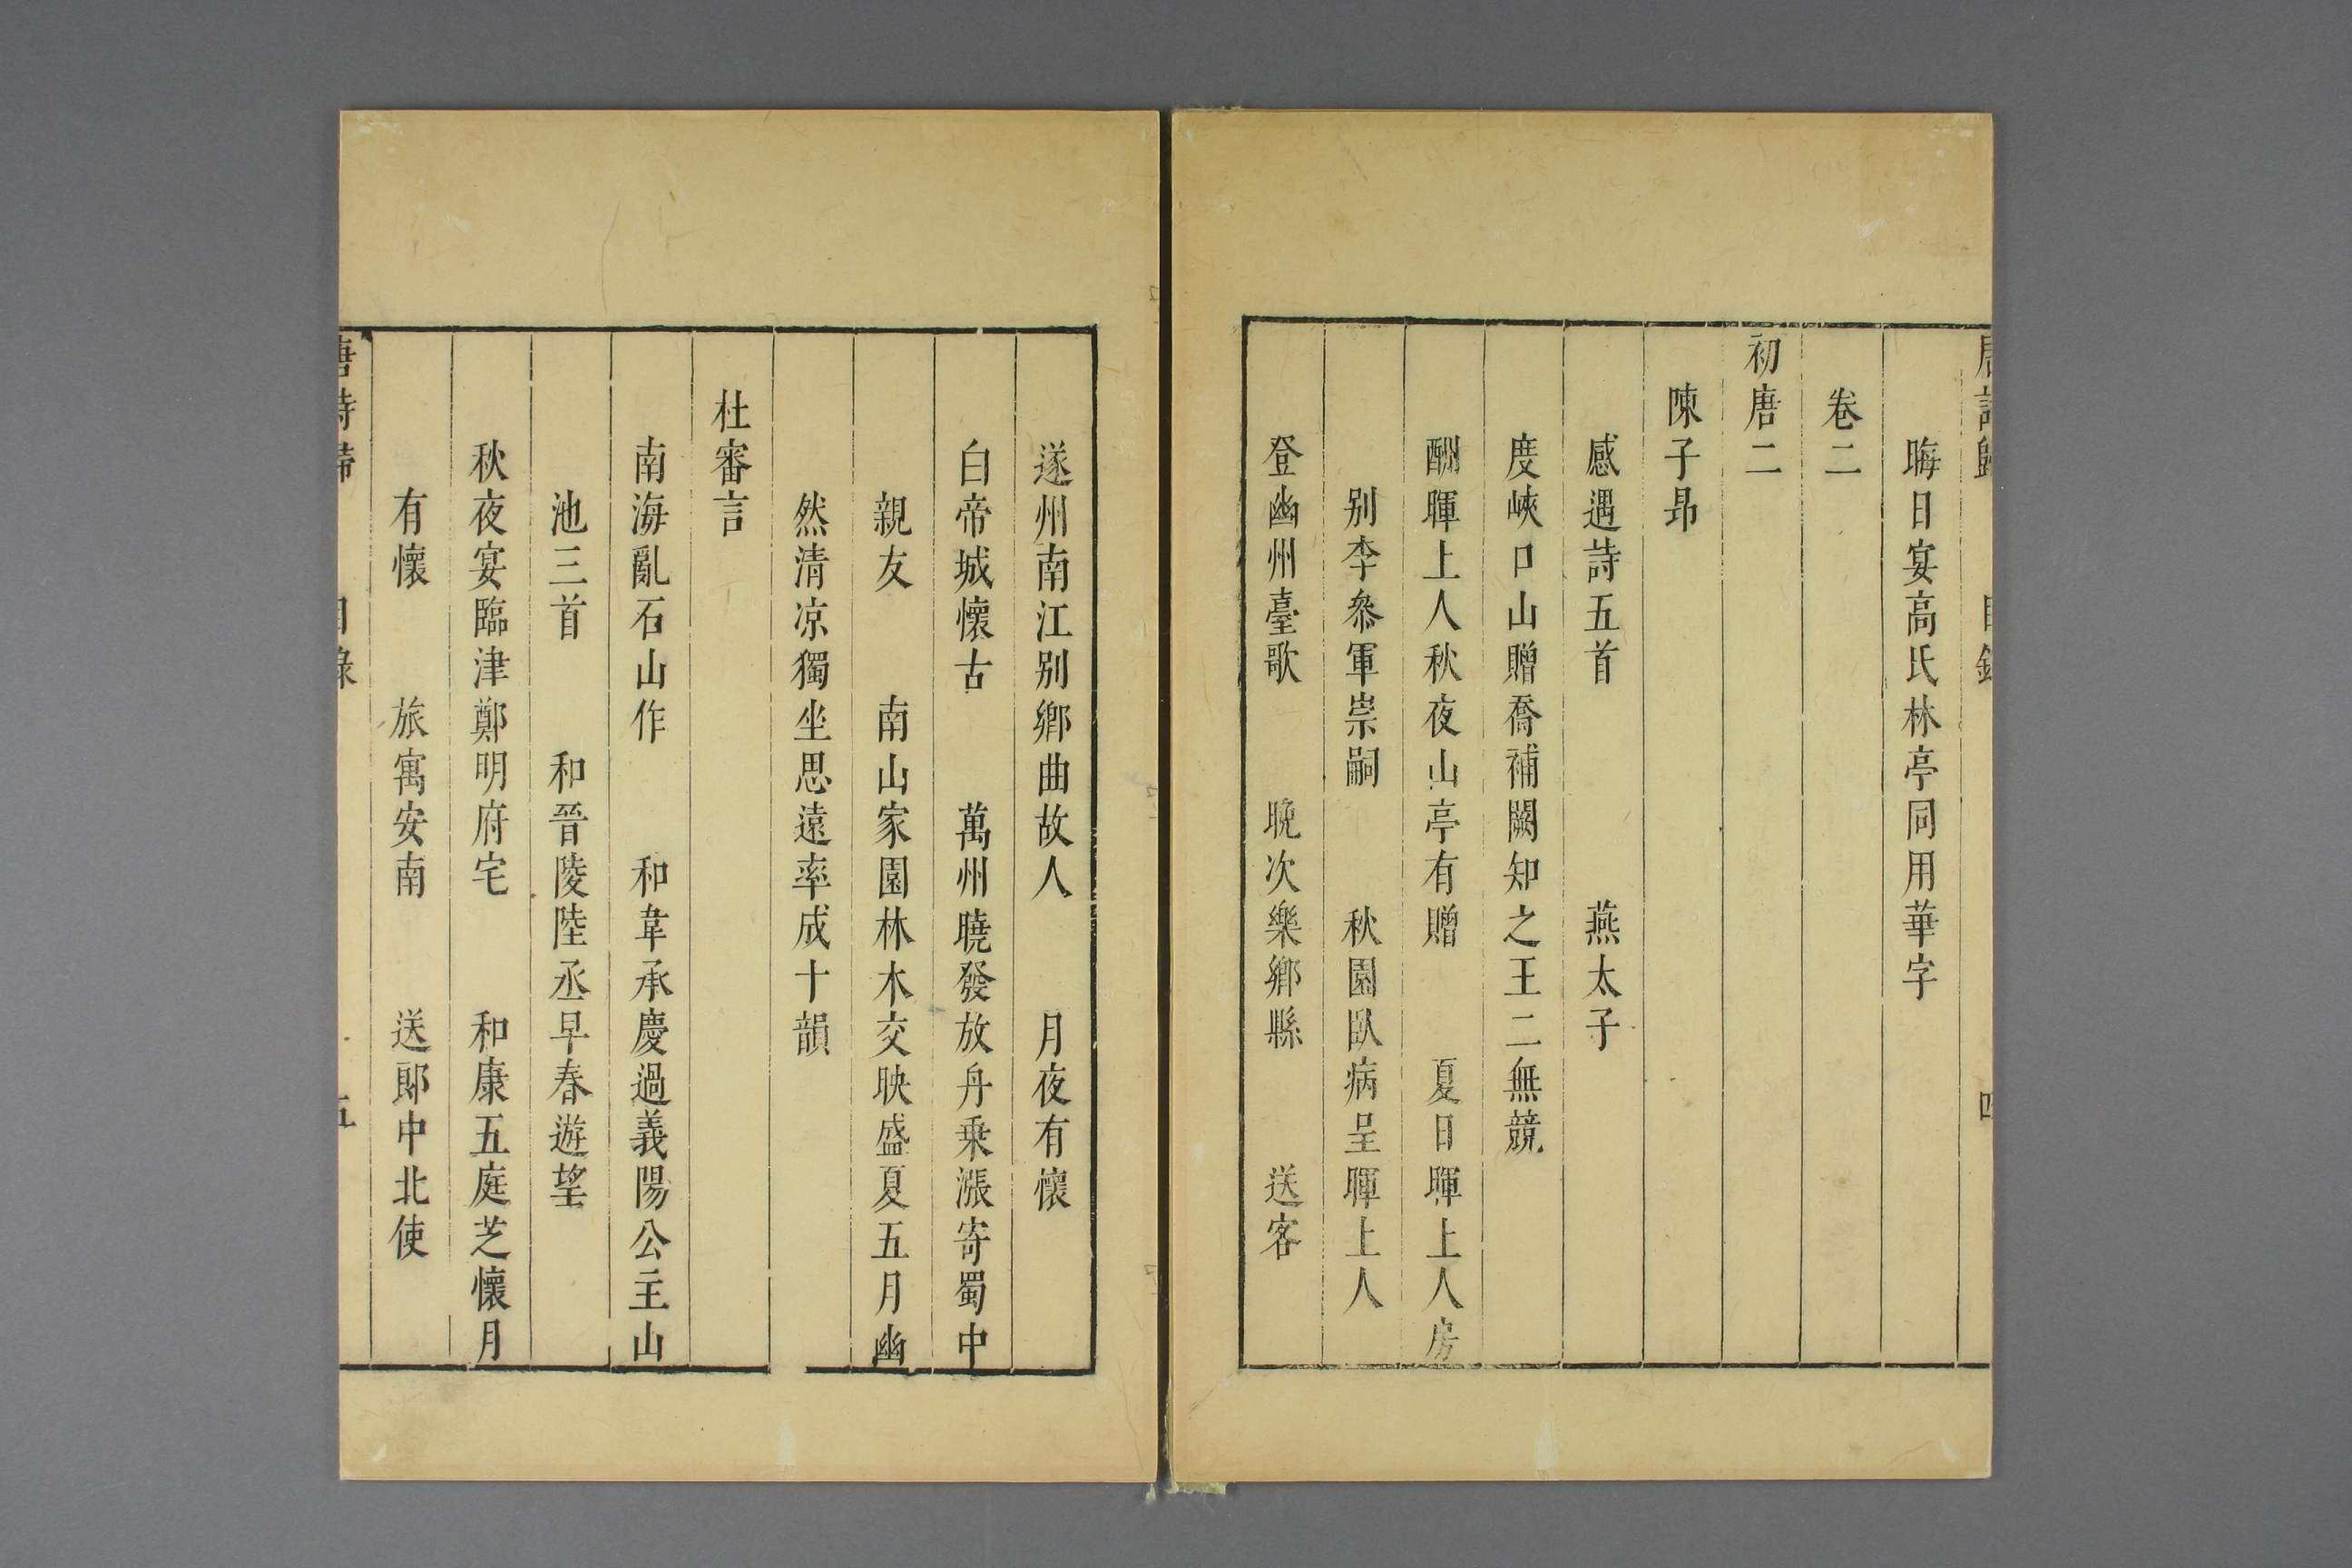 唐詩歸　目錄　四
晦日宴高氏林亭同用華字
卷二
初唐二
陳子昻
感遇詩五首　燕太子
度峽口山贈喬補闕知之王二無競
酬暉上人秋夜山亭有贈　夏日暉上人房
別李叅軍崇嗣　秋園臥病呈暉上人
登幽州臺歌　晚次樂鄉縣　送客
遂州南江别鄉曲故人　月夜有懷
白帝城懷古　萬州曉發放舟乗漲寄蜀中
親友　南山家園林木交映盛夏五月幽
然清凉獨坐思遠率成十韻
杜審言
南海亂石山作　和韋承慶過義陽公主山
池三首　和晉陵陸丞早春遊望
秋夜宴臨津鄭明府宅　和康五庭芝懷月
有懷　旅寓安南　送郎中北使
唐詩歸　目錄　五